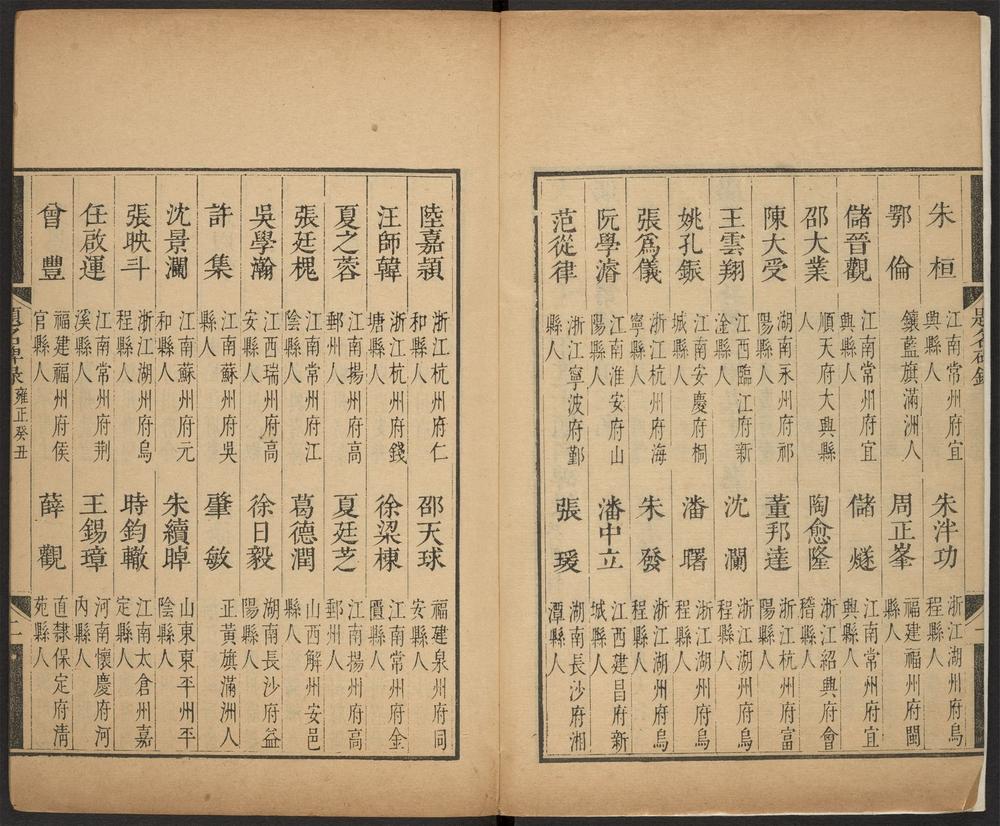 朱桓 江南常州府宜興縣人 朱泮功 浙江湖州府烏程縣人
鄂倫 鑲藍旗滿洲人 周正峯 福建福州府閩縣人
儲晉觀 江南常州府宜興縣人 儲燧 江南常州府宜興縣人
邵大業 順天府大興縣人 陶愈隆 浙江紹興府會稽縣人
陳大受 湖南永州府祁陽縣人 董邦達 浙江杭州府富陽縣人
王雲翔 江西臨江府新淦縣人 沈瀾 浙江湖州府烏程縣人
姚孔鋠 江南安慶府桐城縣人 潘曙 浙江湖州府烏程縣人
張爲儀 浙江杭州府海寧縣人 朱發 浙江湖州府烏程縣人
阮學濬 江南淮安府山陽縣人 潘中立 江西建昌府新城縣人
范從律 浙江寧波府鄞縣人 張瑗 湖南長沙府湘潭縣人
陸嘉穎 浙江杭州府仁和縣人 邵天球 福建泉州府同安縣人
汪師韓 浙江杭州府錢塘縣人 徐梁棟 江南常州府金匱縣人
夏之蓉 江南揚州府高郵州人 夏廷芝 江南揚州府高郵州人
張廷槐 江南常州府江陰縣人 葛德潤 山西解州安邑縣人
吳學瀚 江西瑞州府高安縣人 徐日毅 湖南長沙府益陽縣人
許集 江南蘇州府吳縣人 肇敏 正黃旗滿洲人
沈景瀾 江南蘇州府元和縣人 朱續晫 山東東平州平陰縣人
張映斗 浙江湖州府烏程縣人 時鈞轍 江南太倉州嘉定縣人
任啟運 江南常州府荆溪縣人 王錫璋 河南懷慶府河內縣人
曾豐 福建福州府侯官縣人 薛觀 直隸保定府清苑縣人
題名碑錄 雍正癸丑 二